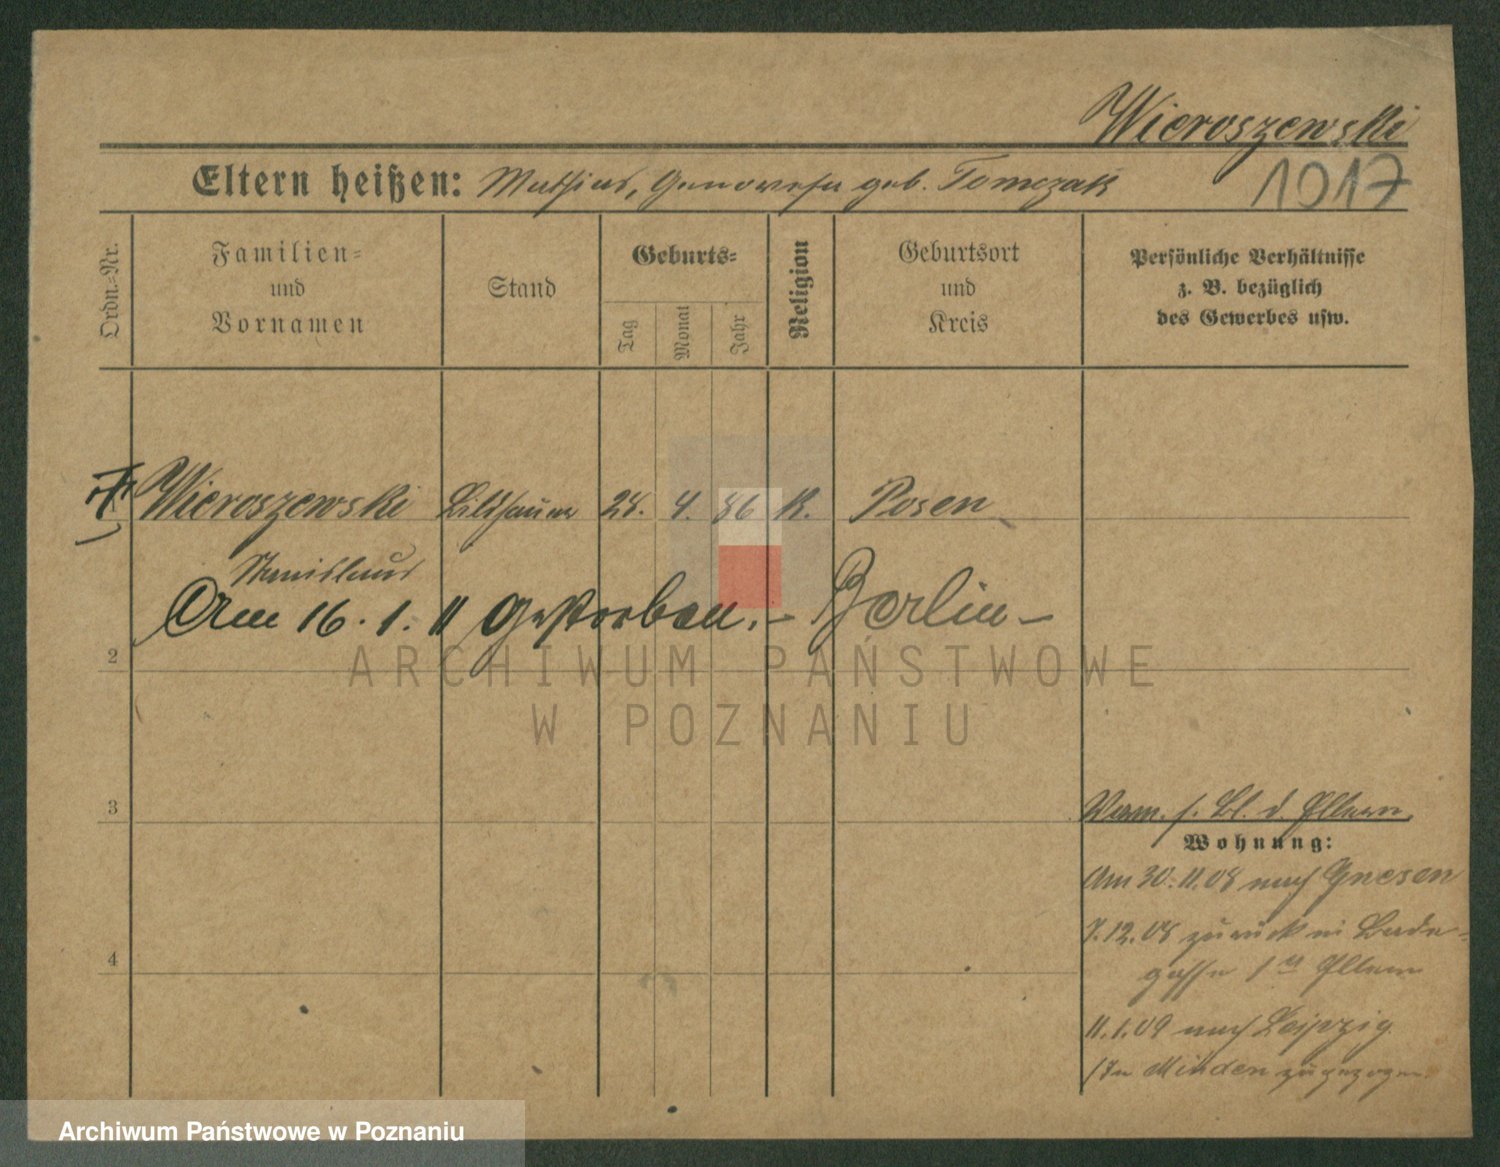 Wieroszewski
1017
Eltern heißen: Mathias, Genowefa geb. Tomczak
Ordn.-Nr.
Familien-
und
Vornamen
Stand
Geburts-
Tag
Monat
Jahr
Religion
Geburtsort
und
Kreis
Persönliche Verhältnisse
z. B. bezüglich
des Gewerbes usw.
Wieroszewski Bildhauer 28. 4. 86 K. Posen
Stanislaus
Am 16. 1. 11 Gestorben. - Berlin -
2
ARCHIWUM PAŃSTWOWE
W POZNANIU
3
4
s. Bl. d. Eltern.
Wohnung:
Am 30.11.08 nach Gnesen
7.12.08 zurück in Bade-
gasse 1 Eltern
11.1.09 nach Leipzig.
In Minden zugezogen.
Archiwum Państwowe w Poznaniu